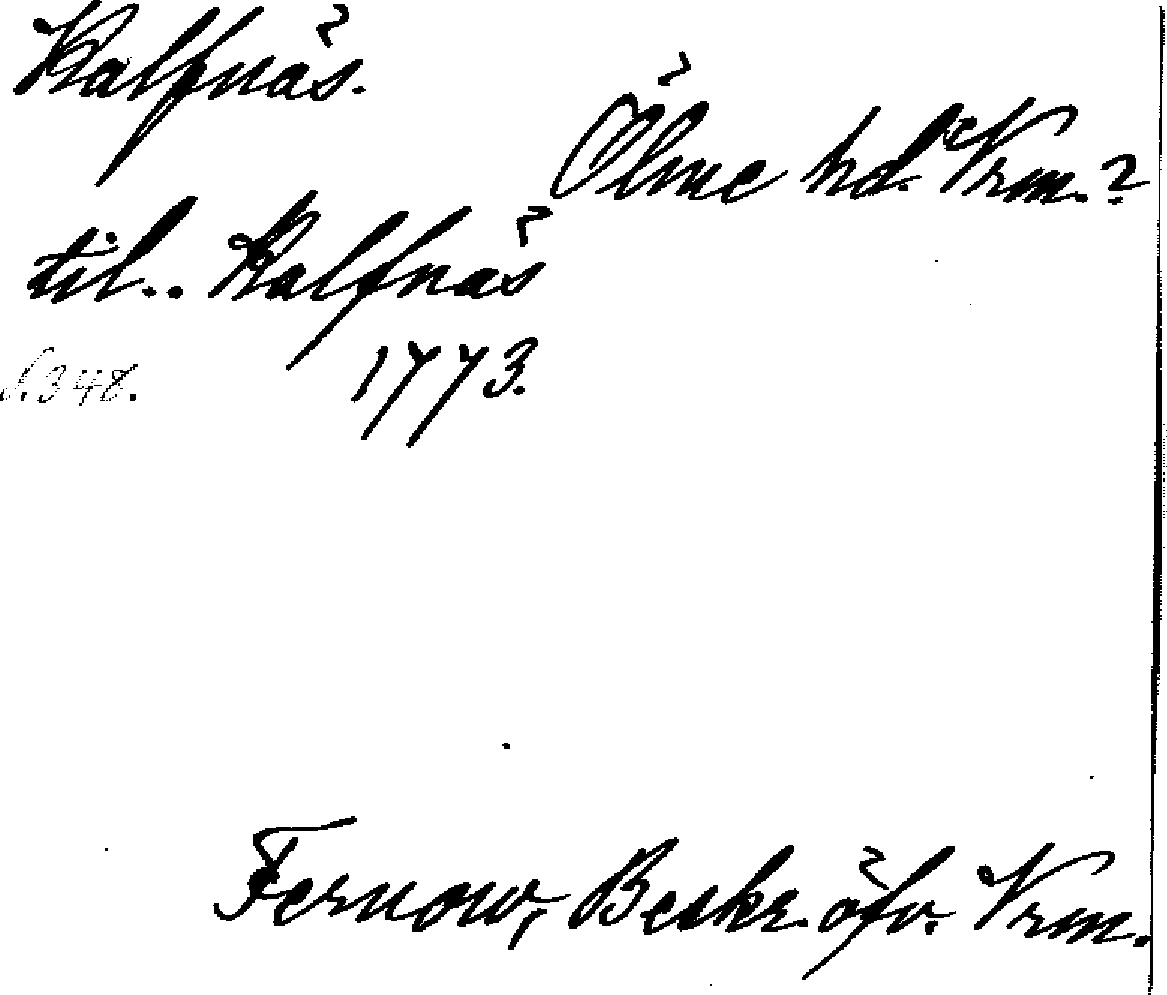 Kalfnäs.
Ölme hd. Vrm.?
til.. Kalfnäs
1773.
S. 348.
Fernow, Beskr. öfv. Vrm.